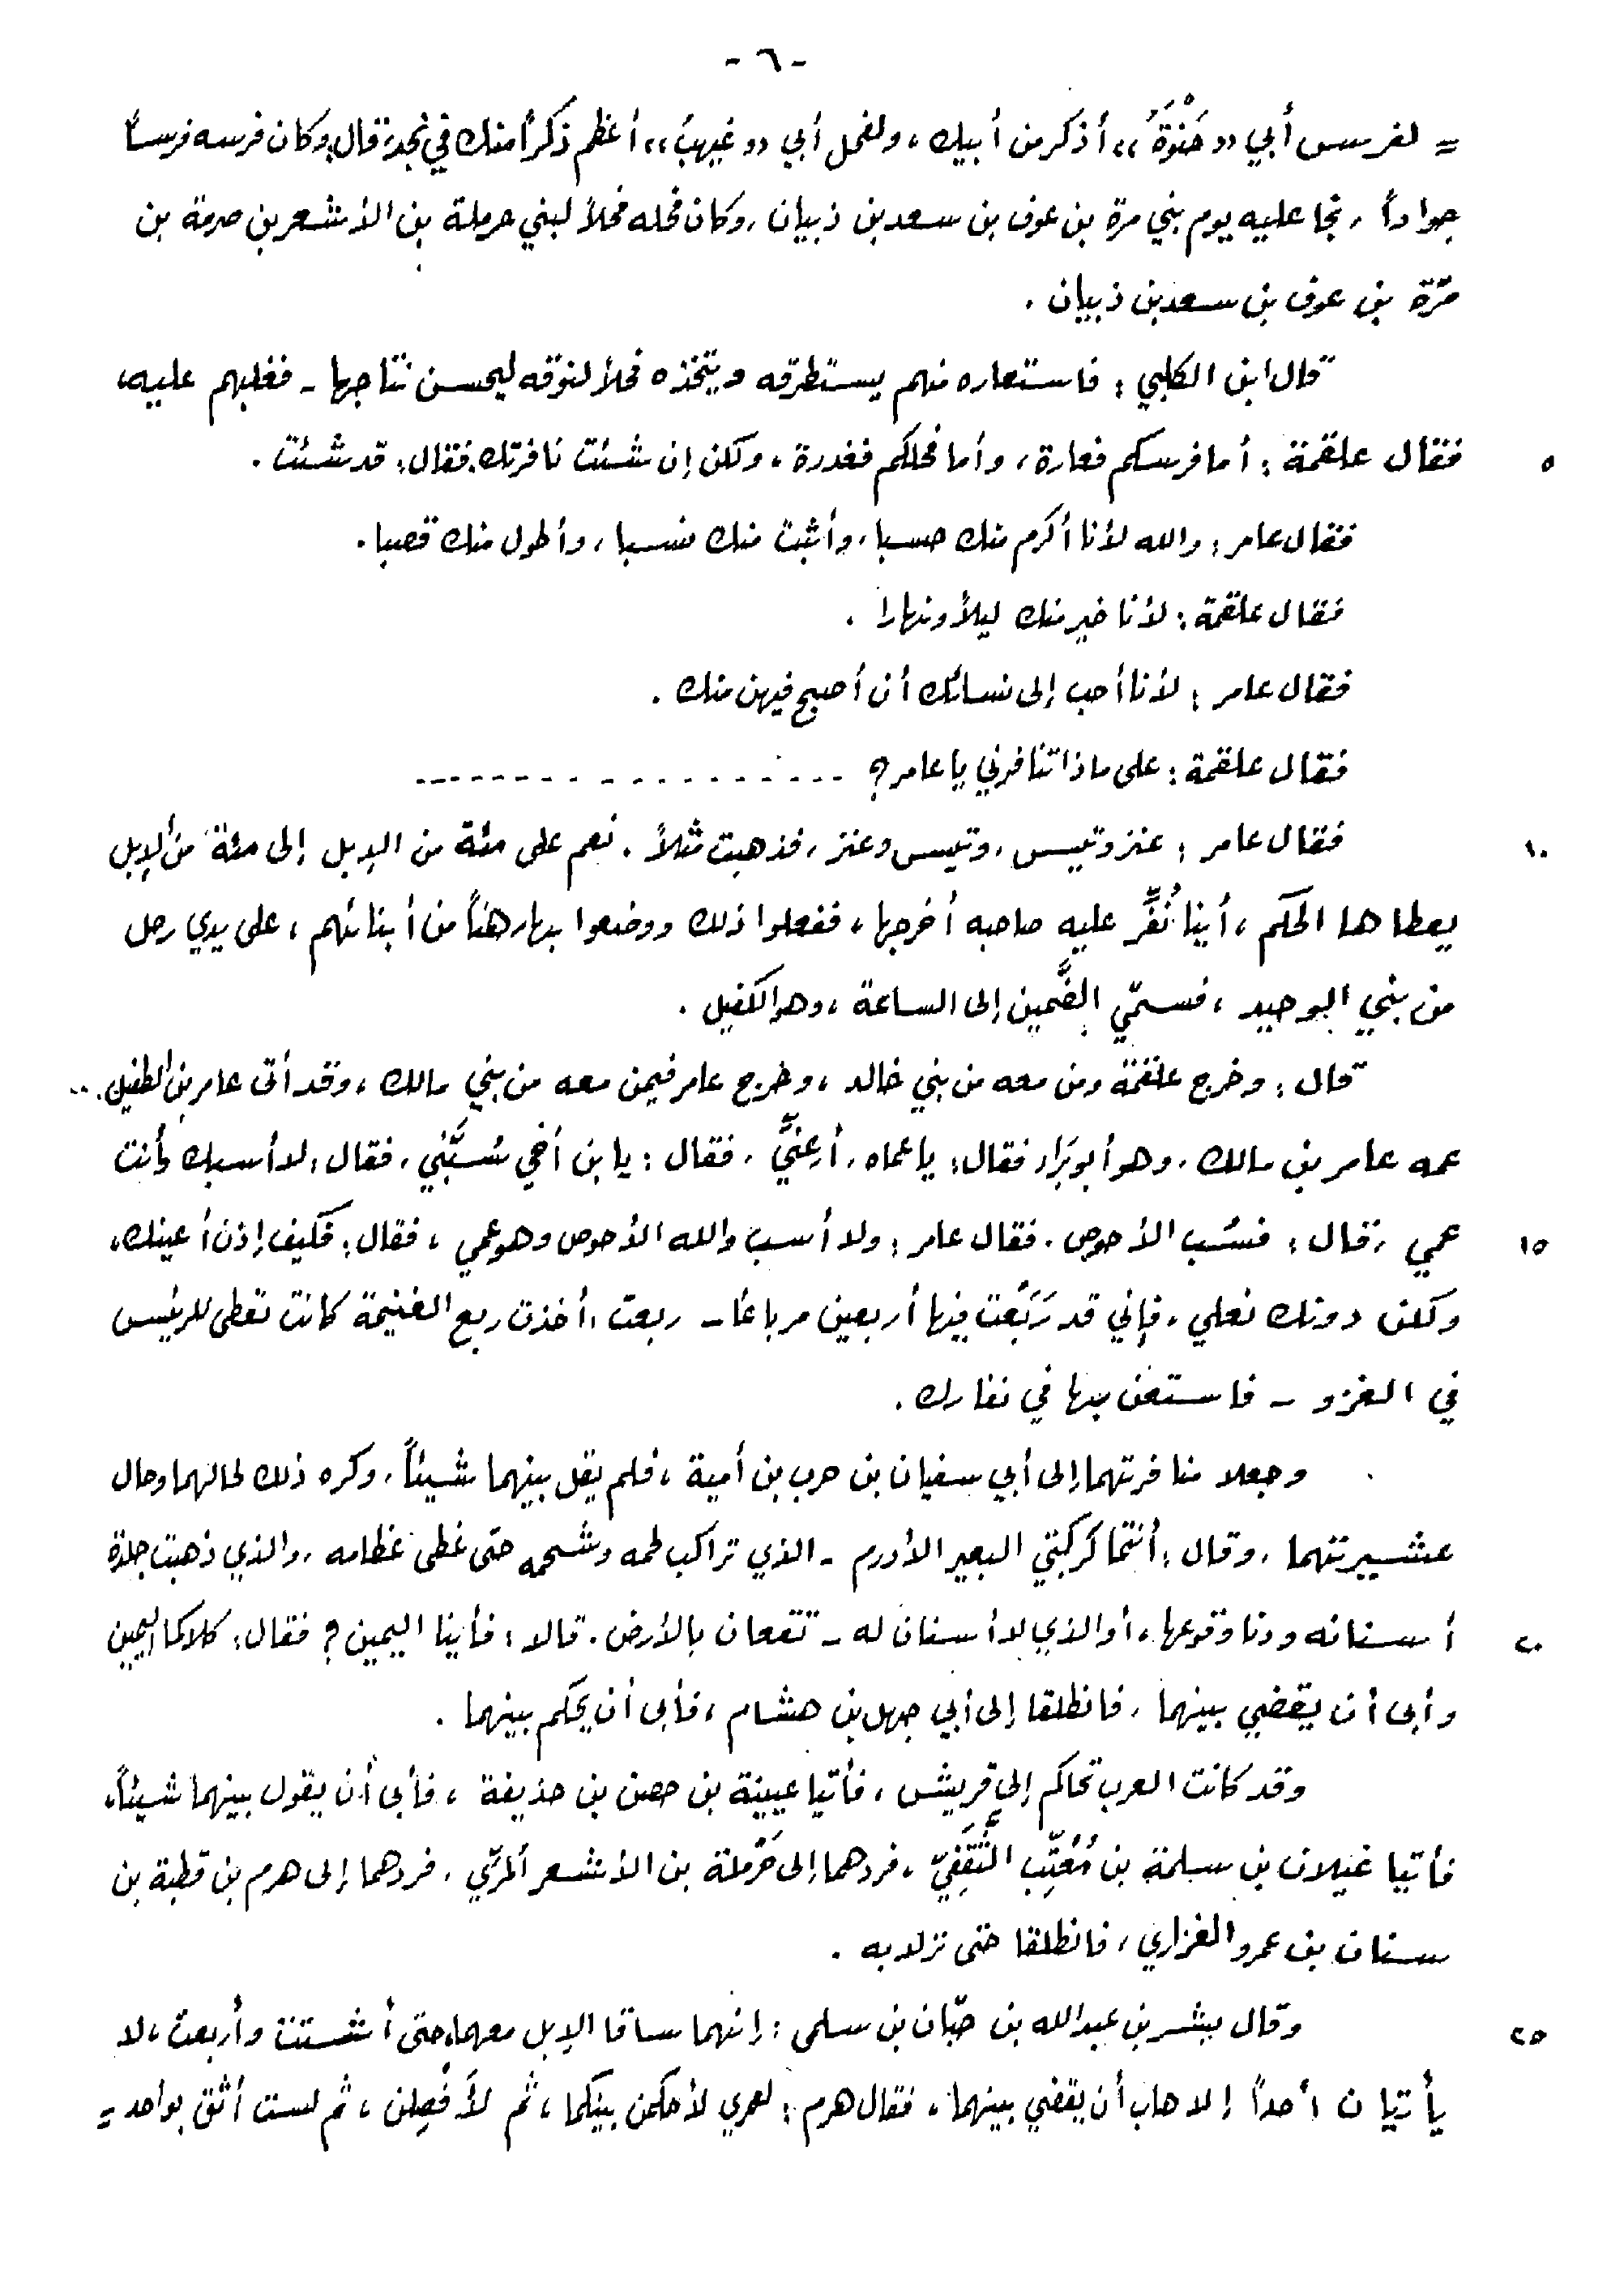 - ٦ -
= لفرس أبي «حَنْوَةُ» أذكر من أبيك، ولفحل أبي «غيهبُ» أعظم ذكراً منك في نجد، قال: وكان فرسه فرساً
جواداً، نجا عليه يوم بني مرة بن عوف بن سعد بن ذبيان، وكان فحله فحلاً لبني حرملة بن الأشعر بن صرمة بن
مّرّة بن عوف بن سعد بن ذبيان.
قال ابن الكلبي: فاستعاره منهم يستطرقه ويتخذه فحلاً لنوقه ليحسن نتاجها - فغلبهم عليه،
٥ فقال علقمة: أما فرسكم فعارة، وأما فحلكم فغدرة، ولكن إن شئت نافرتك، فقال: قد شئت.
فقال عامر: والله لأنا أكرم منك حسبا، وأثبت منك نسبا، وأطول منك قصبا.
فقال علقمة: لأنا خير منك ليلاً ونهارا.
فقال عامر: لأنا أحب إلى نسائك أن أصبح فيهن منك.
فقال علقمة: على ماذا تنافرني يا عامر؟ --------------------
١٠ فقال عامر: عنز وتيس، وتيس وعنز، فذهبت مثلاً. نعم على مئة من الإبل إلى مئة من الإبل
يعطاها الحكم، أينا نُفِّر عليه صاحبه أخرجها، ففعلوا ذلك ووضعوا بها رهناً من أبنائهم، على يدي رجل
من بني الوحيد، فسمّي الضَّمين إلى الساعة، وهو الكفيل.
قال: وخرج علقمة ومن معه من بني خالد، وخرج عامر فيمن معه من بني مالك، وقد أتى عامر بن الطفيل..
عمه عامر بن مالك، وهو أبو بَرَاء فقال: يا عماه، أرعنيَّ، فقال: يا بن أخي سُبَّني، فقال: لا أسبك وأنت
١٥ عمي، قال: فسُب الأحوص. فقال عامر: ولا أسب والله الأحوص وهو عمي، فقال: فكيف إذن أعينك،
ولكن دونك نعلي، فإني قد رَبَعت فيها أربعين مرباعًا - ربعت: أخذت ربع الغنيمة كانت تعطى للرئيس
في الغزو - فاستعن بها في نفارك.
وجعلا منافرتهما إلى أبي سفيان بن حرب بن أمية، فلم يقل بينهما شيئاً، وكره ذلك لحالهما وحال
عشيرتهما، وقال: أنتما كركبتي البعير الأدرم - الذي تراكب لحمه وشحمه حتى غطى عظامه، والذي ذهبت جلدة
٢٠ أسنانه ودنا وقوعها، أو الذي لا أسنان له - تقعان بالأرض. قالا: فأينا اليمين؟ فقال: كلاكما اليمين
وأبى أن يقضي بينهما، فانطلقا إلى أبي جهل بن هشام، فأبى أن يحكم بينهما.
وقد كانت العرب تحاكم إلى قريش، فأتيا عيينة بن حصن بن حذيفة، فأبى أن يقول بينهما شيئاً،
فأتيا غيلان بن سلمة بن مُعَتِّب الثَّقَفِيّ، فردهما إلى حَرْملة بن الأشعر المرّي، فردهما إلى هرم بن قطبة بن
سنان بن عمرو الفزاري، فانطلقا حتى نزلا به.
٢٥ وقال بشر بن عبد الله بن حبّان بن سلمى: إنهما ساقا الإبل معهما، حتى أشتت وأربعت، لا
يأتيان أحداً إلا هاب أن يقضي بينهما، فقال هرم: لعمري لأحكمن بينكما، ثم لأفصِلن، ثم لست أثق بواحد =